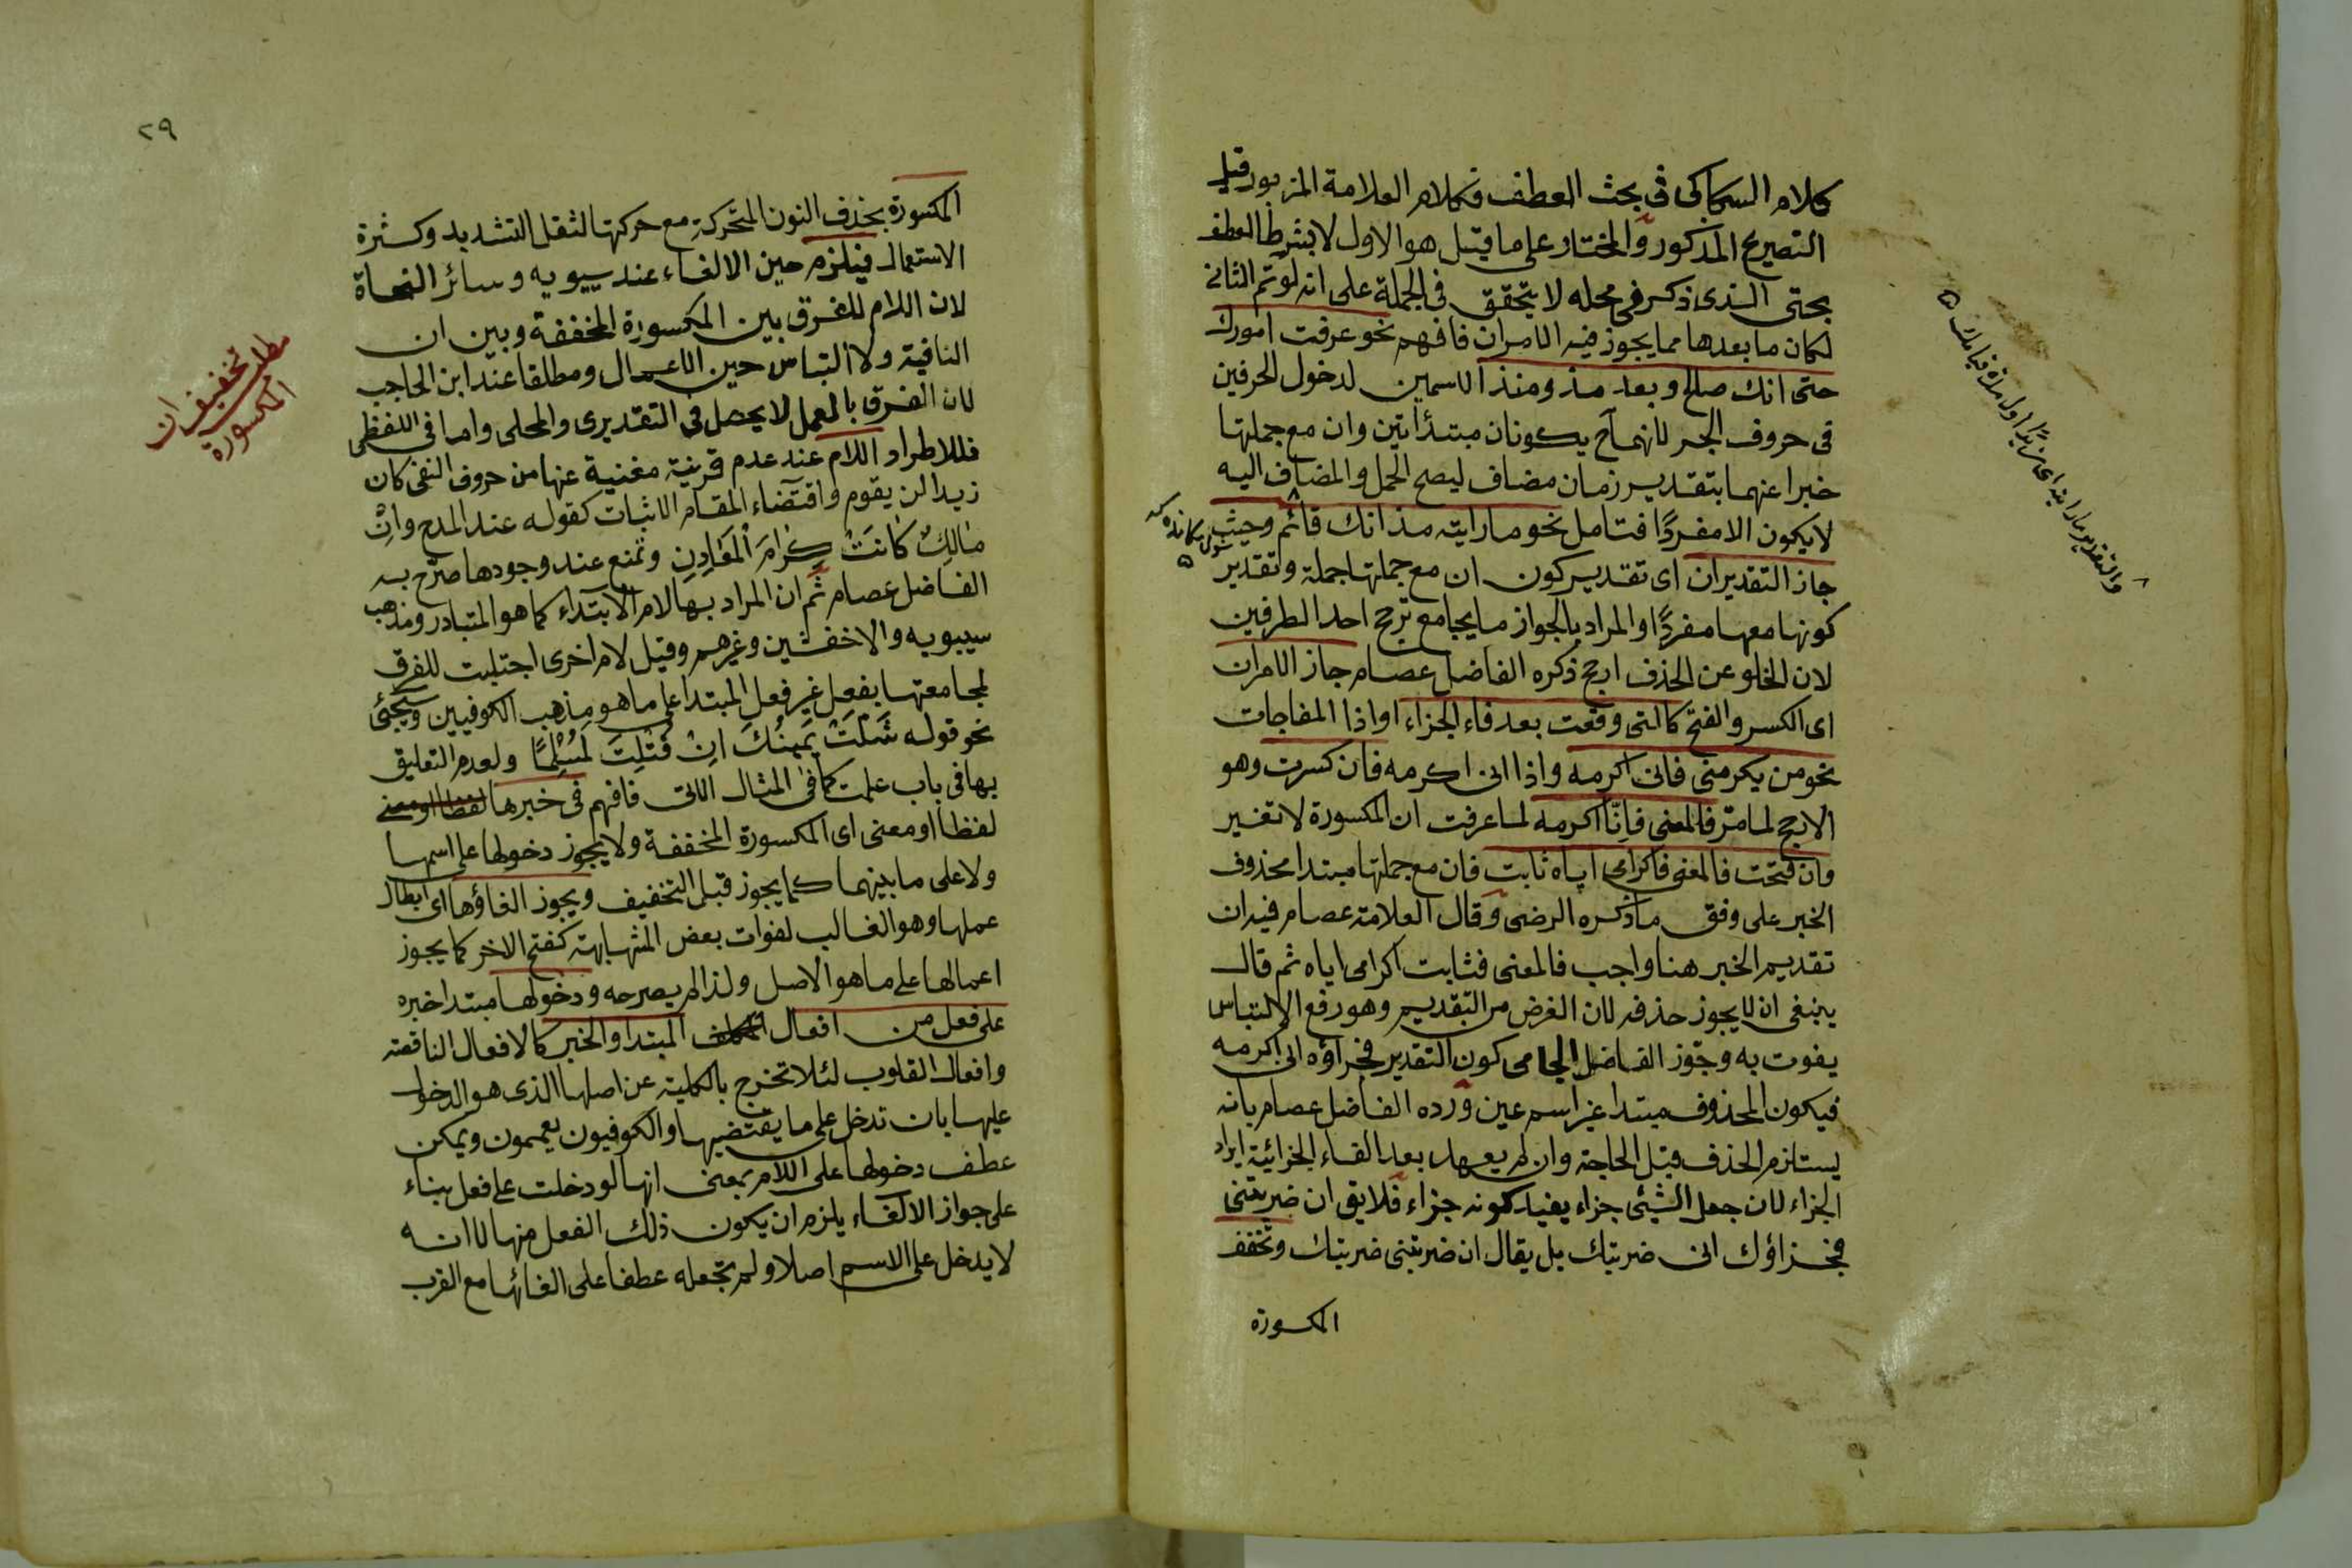 كلام السكاكى فى بحث العطف فكلام العلامة المزبور قبل
التصريح المذكور والمختار على ما قيل هو الاول لا بشرط العطف
بحتى الذى ذكر فى محله لا يتحقق فى الجملة على انه لو تم الثانى
لكان ما بعدها مما يجوز فيه الامران فافهم نحو عرفت امورك
حتى انك صالح وبعد مذ ومنذ الاسمين لدخول الحرفين
فى حروف الجر لانهما ح يكونان مبتدأتين وان مع جملتها
خبرا عنهما بتقدير زمان مضاف ليصح الحمل والمضاف اليه
لا يكون الا مفردًا فتامل نحو ما رايته مذ انك قائم وحيث
جاز التقديران اى تقدير كون ان مع جملتها جملة وتقدير
كونها معها مفردًا والمراد بالجواز ما يجامع ترجح احد الطرفين
لان الخلو عن الحذف ارجح ذكره الفاضل عصام جاز الامران
اى الكسر والفتح كالتى وقعت بعد فاء الجزاء او اذا المفاجات
نحو من يكرمنى فانى اكرمه واذا انى اكرمه فان كسرت وهو
الارجح لما مرّ فالمعنى فانّا اكرمه لما عرفت ان المكسورة لا تغير
وان فتحت فالمعنى فاكرامى اياه ثابت فان مع جملتها مبتدا محذوف
الخبر على وفق ما ذكره الرضى وقال العلامة عصام فيه ان
تقديم الخبر هنا واجب فالمعنى فثابت اكرامى اياه ثم قال
ينبغى ان لا يجوز حذفه لان الغرض من التقديم وهو رفع الالتباس
يفوت به وجوّز الفاضل الجامى كون التقدير فجزاؤه انى اكرمه
فيكون المحذوف مبتدا غير اسم عين ورده الفاضل عصام بانه
يستلزم الحذف قبل الحاجة وان لم يعهد بعد الفاء الجزائية ايراد
الجزاء لان جعل الشيئ جزاء يفيد كونه جزاء فلا يق ان ضربتنى
فجزاؤك انى ضربتك بل يقال ان ضربتنى ضربتك وتخفف
المكسورة
٢٩
المكسورة بحذف النون المتحركة مع حركتها لثقل التشديد وكثرة
الاستعمال فيلزم حين الالغاء عند سيبويه وسائر النحاة
لان اللام للفرق بين المكسورة المخففة وبين ان
النافية ولا التباس حين الاعمال ومطلقا عند ابن الحاجب
لان الفرق بالعمل لا يحصل فى التقديرى والمحلى واما فى اللفظى
فللاطراد اللام عند عدم قرينة مغنية عنها من حروف النفى كان
زيدا لن يقوم واقتضاء المقام الاثبات كقوله عند المدح وانْ
مالِكٌ كانَتْ كِرَامَ الْمَعَادِنِ وتمنع عند وجودها صرّح به
الفاضل عصام ثم ان المراد بها لام الابتداء كما هو المتبادر ومذهب
سيبويه والاخفشين وغيرهم وقيل لام اخرى اجتلبت للفرق
لمجامعتها بفعل غير فعل المبتدا على ما هو مذهب الكوفيين وسيجئ
نحو قوله شَلَّتْ يَمِينُكَ اِنْ قَتَلْتَ لَمُسْلِمًا ولعدم التعليق
بها فى باب علمت كما فى المثال الاتى فافهم فى خبرها
لفظا او معنى اى المكسورة المخففة ولا يجوز دخولها على اسمها
ولا على ما بينهما كما يجوز قبل التخفيف ويجوز الغاؤها اى ابطال
عملها وهو الغالب لفوات بعض المشابهة كفتح الاخر كما يجوز
اعمالها على ما هو الاصل ولذا لم يصرحه ودخولها مبتدا خبره
على فعل من افعال المبتدا والخبر كالافعال الناقصة
وافعال القلوب لئلا تخرج بالكلية عن اصلها الذى هو الدخول
عليها بان تدخل على ما يقتضيها والكوفيون يعممون ويمكن
عطف دخولها على اللام بمعنى انها لو دخلت على فعل بناء
على جواز الالغاء يلزم ان يكون ذلك الفعل منها لا انه
لا يدخل على الاسم اصلا ولم تجعله عطفا على الغائها مع القرب
مطلب تخفيف ان
المكسورة